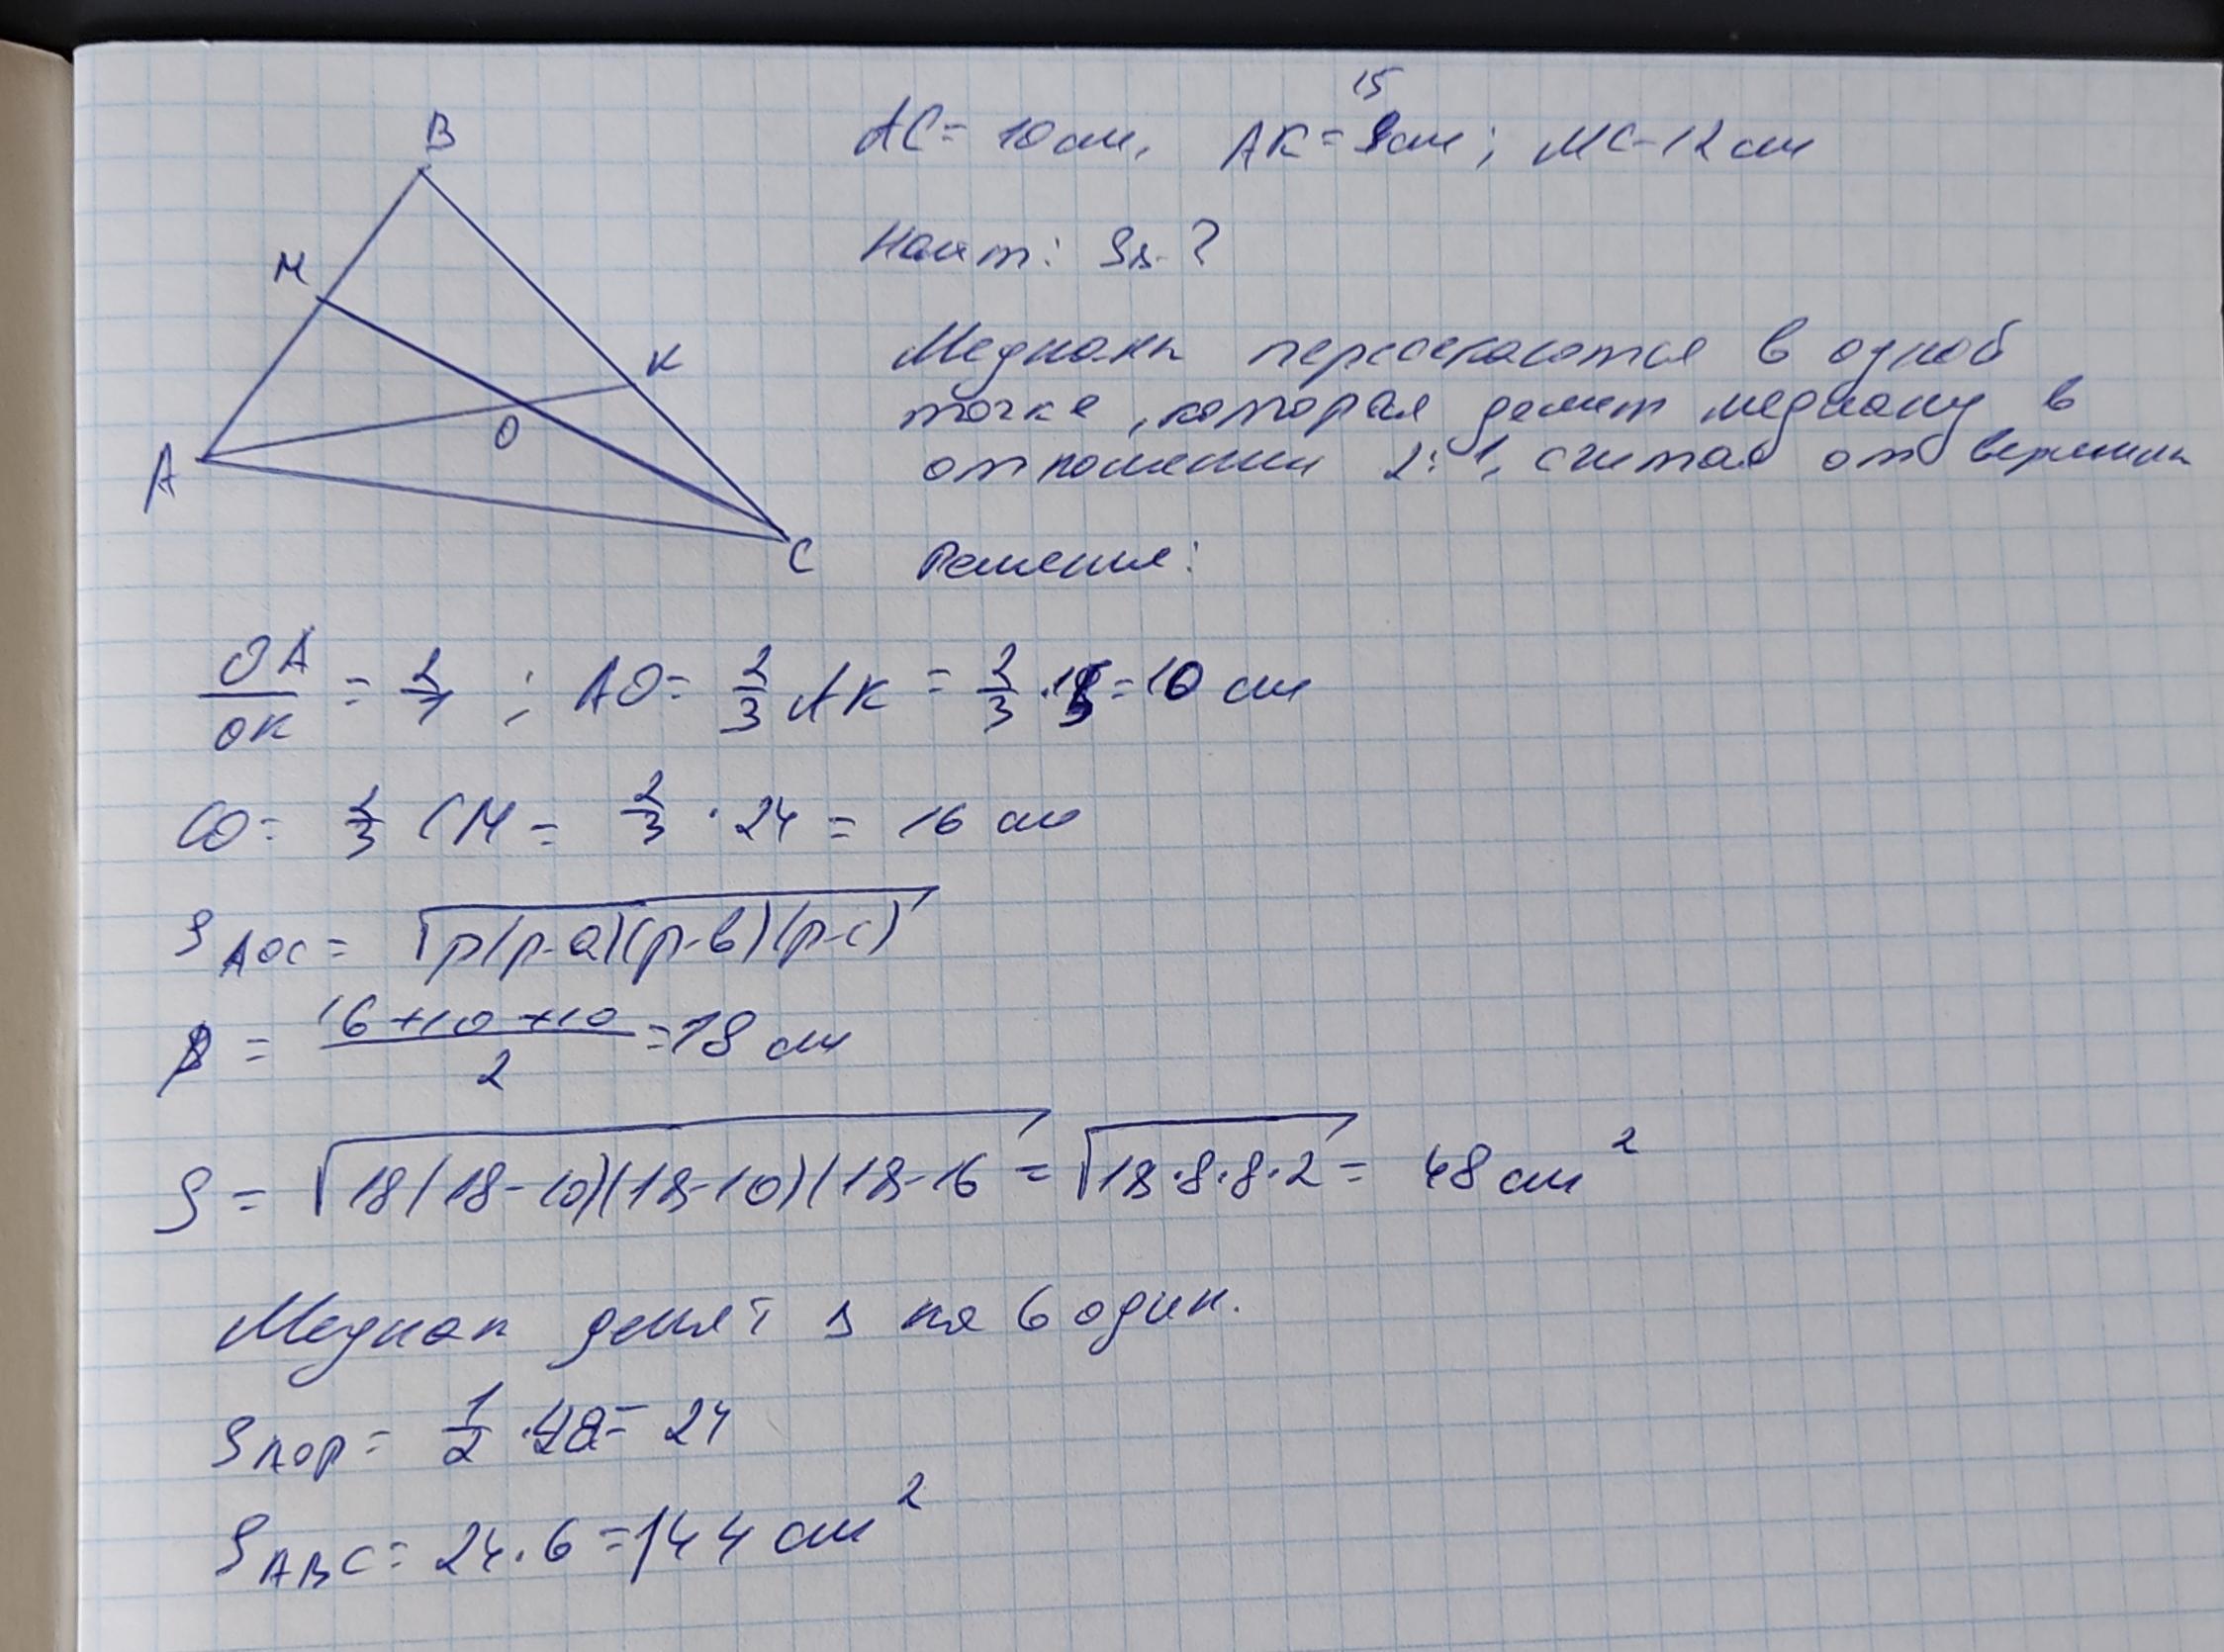 B
M
K
O
A
C
AC = 10 см, AK = 15 см; MC - 12 см
Найт: S△ - ?
Медианы пересекаются в одной
точке, которая делит медиану в
отношении 2:1, считая от вершины
Решение:
OA/OK = 2/1 ; AO = 2/3 AK = 2/3 · 15 = 10 см
CO = 2/3 CM = 2/3 · 24 = 16 см
S AOC = √p(p-a)(p-b)(p-c)
p = (16+10+10)/2 = 18 см
S = √18(18-10)(18-10)(18-16 = √18·8·8·2 = 48 см²
Медиан делят △ на 6 один.
S AOP = 1/2 · 48 = 24
S ABC = 24·6 = 144 см²